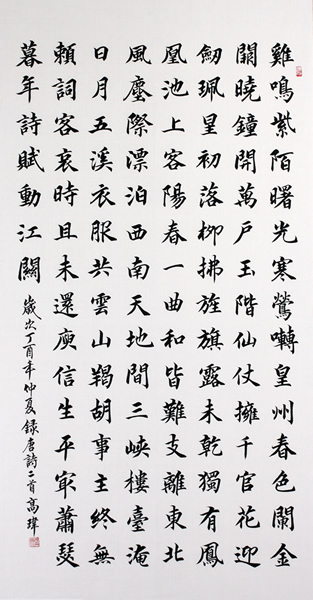 雞鳴紫陌曙光寒鶯囀皇州春色闌金
闕曉鐘開萬戶玉階仙仗擁千官花迎
劍珮星初落柳拂旌旗露未乾獨有鳳
凰池上客陽春一曲和皆難支離東北
風塵際漂泊西南天地間三峽樓臺淹
日月五溪衣服共雲山羯胡事主終無
賴詞客哀時且未還庾信生平冣蕭瑟
暮年詩賦動江關
歲次丁酉年仲夏錄唐詩二首高瑋